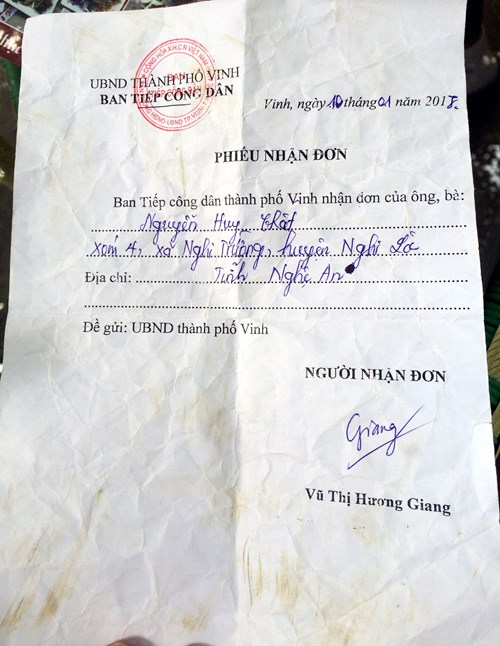 UBND THÀNH PHỐ VINH
BAN TIẾP CÔNG DÂN
Vinh, ngày 10 tháng 01 năm 2018.
PHIẾU NHẬN ĐƠN
Ban Tiếp công dân thành phố Vinh nhận đơn của ông, bà:
Nguyễn Huy Chất
xóm 4, xã Nghi Trường, huyện Nghi Lộc
Địa chỉ: Tỉnh Nghệ An
Đề gửi: UBND thành phố Vinh
NGƯỜI NHẬN ĐƠN
Giang
Vũ Thị Hương Giang